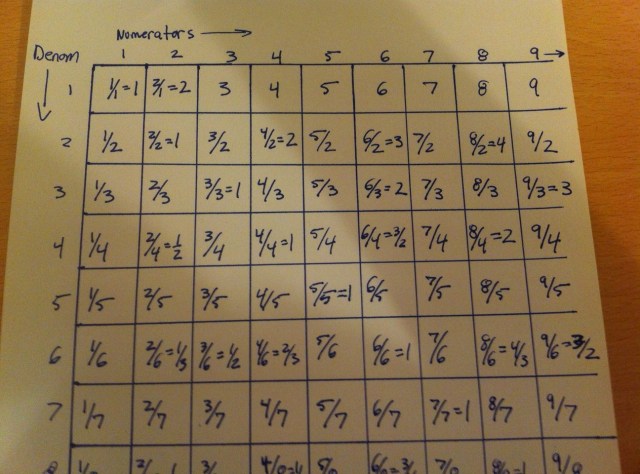 Numerators →
Denom 1 2 3 4 5 6 7 8 9 →
1 1/1=1 2/1=2 3 4 5 6 7 8 9
2 1/2 2/2=1 3/2 4/2=2 5/2 6/2=3 7/2 8/2=4 9/2
3 1/3 2/3 3/3=1 4/3 5/3 6/3=2 7/3 8/3 9/3=3
4 1/4 2/4=1/2 3/4 4/4=1 5/4 6/4=3/2 7/4 8/4=2 9/4
5 1/5 2/5 3/5 4/5 5/5=1 6/5 7/5 8/5 9/5
6 1/6 2/6=1/3 3/6=1/2 4/6=2/3 5/6 6/6=1 7/6 8/6=4/3 9/6=3/2
7 1/7 2/7 3/7 4/7 5/7 6/7 7/7=1 8/7 9/7